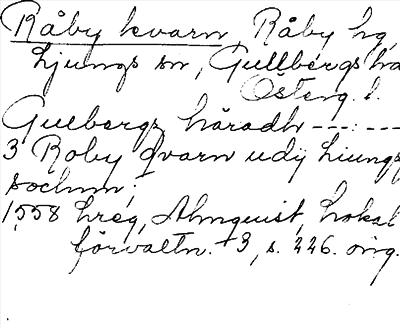 Råby kvarn, Råby hg,
Ljungs sn, Gullbergs hd
Österg. l.
Gulbergz häradh ---:---
3 Roby qvarn udij Liungz
sochnn;
1558 hreg, Almquist, Lokal
förvaltn. +3, s. 226. orig.